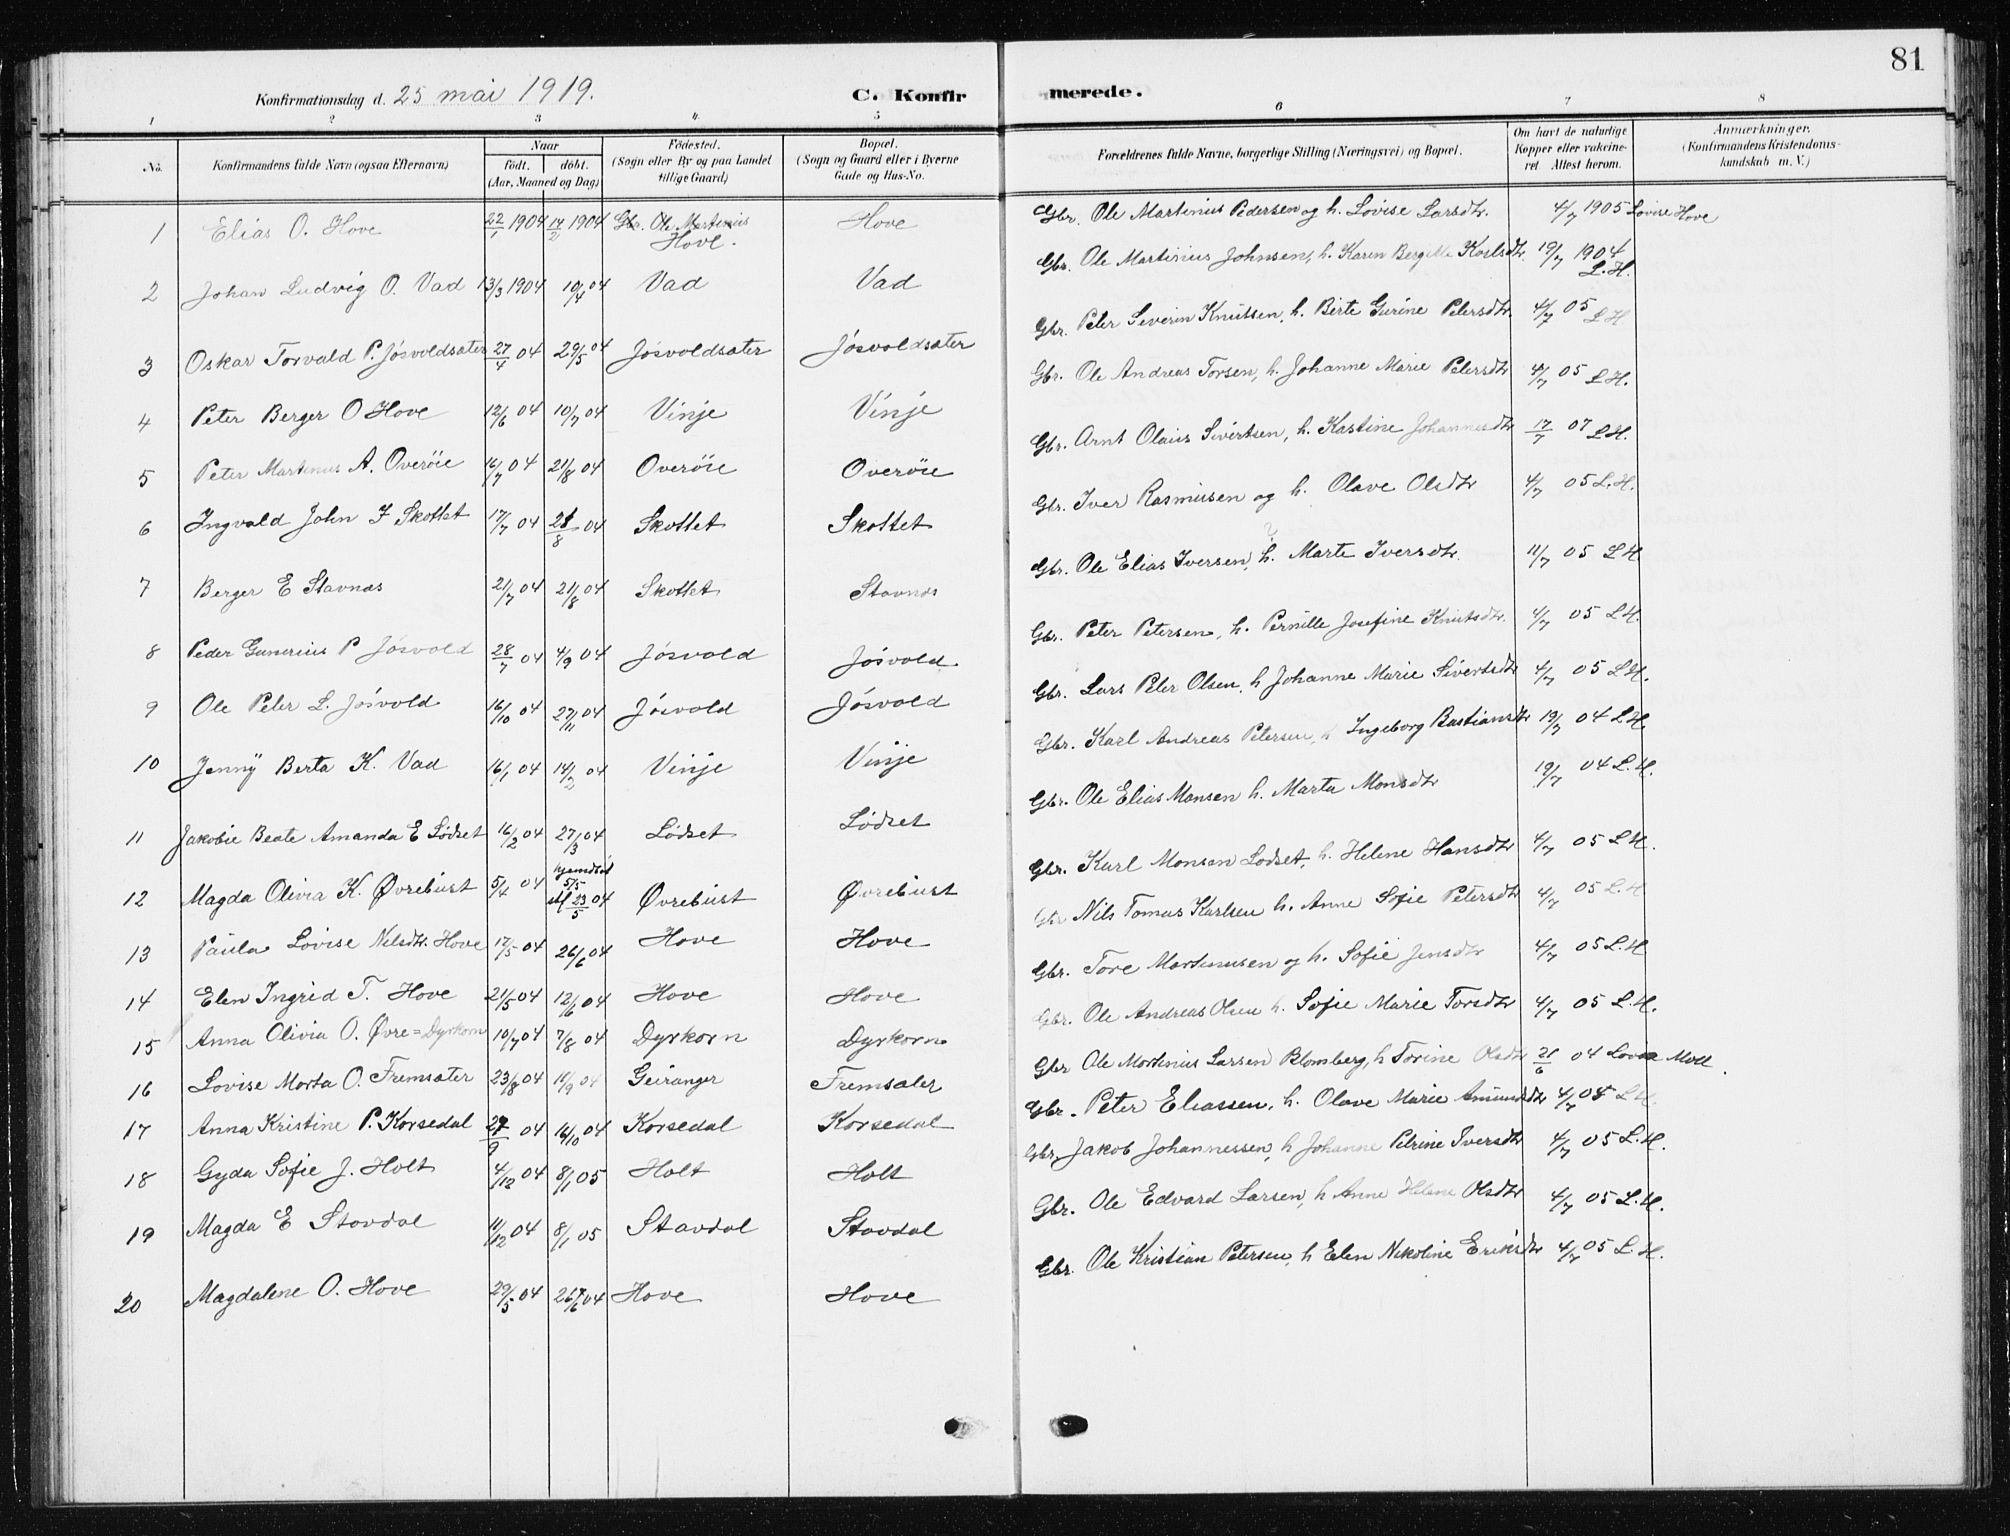 81
Konfirmationsdag d. 25 mai 1919. C. Konfirmerede.
1 2 3 4. 5 6 7 8
No. Konfirmandens fulde Navn (ogsaa Efternavn) Naar født. døbt. (Aar, Maaned og Dag) Fødested. (Sogn eller By og paa Landet tillige Gaard) Bopæl. (Sogn og Gaard eller i Byerne Gade og Hus-No. Forældrenes fulde Navne, borgerlige Stilling (Næringsvei) og Bopæl. Om havt de naturlige Kopper eller vakcineret Attest herom. Anmærkninger. (Konfirmandens Kristendomskundskab m. V.)
1 Elias O. Hove 22/1 1904 14/2 1904 Gbr. Ole Martinius Hove. Hove Gbr. Ole Martinius Pedersen og h. Lovise Larsdtr. 4/7 1905 Lovise Hove
2 Johan Ludvig O. Vad 13/3 1904 10/4 04 Vad Vad Gbr. Ole Martinius Johnsen, h. Karen Bergitte Karlsdtr. 19/7 1904 L.H.
3 Oskar Torvald P. Jósvoldsæter 27/4 04 29/5 04 Jósvoldsæter Jósvoldsæter Gbr. Peter Severin Knutsen, h. Birte Gurine Petersdtr. 4/7 05 L H
4 Peter Berger O Hove 12/6 04 10/7 04 Vinje Vinje Gbr. Ole Andreas Torsen, h. Johanne Marie Petersdtr 4/7 05 L H.
5 Peter Martinus A. Overöie 16/7 04 21/8 04 Overöie Overöie Gbr. Arnt Olaus Sivertsen, h. Kastine Johannesdtr 17/7 07 L H.
6 Ingvald John I Skottet 17/7 04 21/8 04 Skottet Skottet Gbr. Iver Rasmussen og h. Olave Olsdtr 4/7 05 L.H.
7 Berger E Stavnæs 21/7 04 21/8 04 Skottet Stavnæs Gbr. Ole Elias Iversen, h. Marte Iversdtr. 11/7 05 L H
8 Peder Gunerius P Jósvold 28/7 04 4/9 04 Jósvold Jósvold Gbr. Peter Petersen, h. Pernille Josefine Knutsdtr. 4/7 05 L H.
9 Ole Peter L. Jósvold 16/10 04 27/11 04 Jósvold Jósvold Gbr. Lars Peter Olsen, h Johanne Marie Sivertsdtr 4/7 05 L H.
10 Jenny Berta K. Vad 16/1 04 14/2 04 Vinje Vinje Gbr. Karl Andreas Petersen, h Ingeborg Bastiansdtr 19/7 04 L H.
11 Jakobie Beate Amanda E Lødset 16/2 04 27/3 04 Lødset Lødset Gbr. Ole Elias Monsen h. Marta Monsdtr 19/7 04 L.H.
12 Magda Olivia K. Øvrebust 5/4 04 hjemdöbt 5/5 stf 23/5 04 Øvrebust Øvrebust Gbr. Karl Monsen Lødset, h. Helene Hansdtr 4/7 05 L H.
13 Paula Lovise Nilsdtr. Hove 17/5 04 26/6 04 Hove Hove Gbr Nils Tomas Karlsen h. Anne Sofie Petersdtr 4/7 05 L. H
14 Elen Ingrid T. Hove 21/5 04 12/6 04 Hove Hove Gbr. Tore Martinusen og h. Sofie Jensdtr 4/7 05 L. H
15 Anna Olivia O. Øvre=Dyrkorn 10/7 04 7/8 04 Dyrkorn Dyrkorn Gbr. Ole Andreas Olsen h. Sofie Marie Torsdtr 4/7 05 L. H.
16 Lovise Marta O. Fremsæter 23/8 04 11/9 04 Geiranger Fremsæter Gbr Ole Martinius Larsen Blomberg, h Torine Olsdtr 21/6 04 Moll.
17 Anna Kristine P. Korsedal 04 16/10 04 Korsedal Korsedal Gbr. Peter Eliassen, h. Olave Marie Amundsdtr 4/7 05 L H.
18 Gyda Sofie J. Holt 4/12 04 8/1 05 Holt Holt Gbr. Jakob Johannessen, h Johanne Petrine Iversdtr 4/7 05 L. H.
19 Magda E Stavdal 11/12 04 8/1 05 Stavdal Stavdal Gbr. Ole Edvard Larsen, h Anne Helene Olsdtr 4/7 05 L. H.
20 Magdalene O. Hove 29/5 04 26/6 04 Hove Hove Gbr. Ole Kristian Petersen, h Elen Nikoline Eriksdtr 4/7 05 L. H.